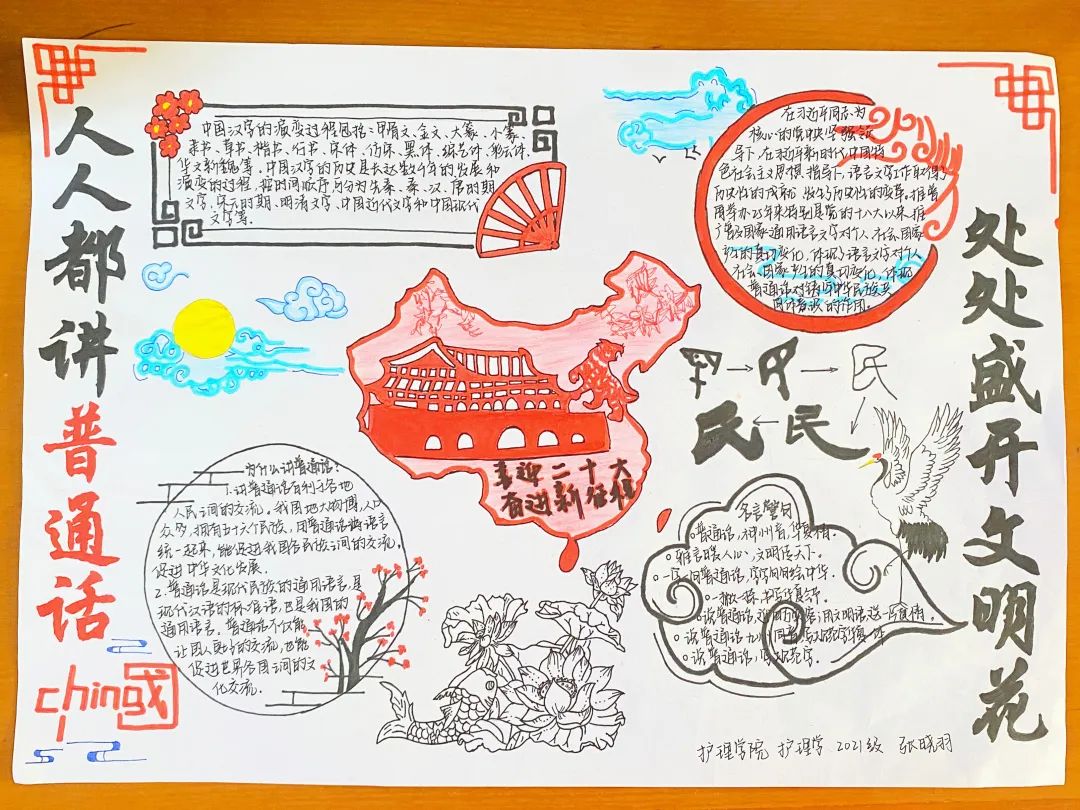 人人都讲普通话
处处盛开文明花
中国汉字的演变过程包括:甲骨文、金文、大篆、小篆、
隶书、草书、楷书、行书、宋体、仿宋、黑体、综艺体、彩云体、
华文新魏等。中国汉字的历史具长达数千年的发展和
演变的过程，按时间顺序可分为先秦、秦、汉、唐时期
文字，宋元时期、明清文字、中国近代文字和中国现代
文字等.
在习近平同志为
核心的党中央坚强领
导下,在习近平新时代中国特
色社会主义思想指导下,语言文字工作取得了
历史性的成就
历史性的变革。推普
周举办25年来特别是党的十八大以来,推
广普及国家通用语言文字对个人、社会、国家
语言文字对个人
社会、国家
的真切变化,体现
普通话对铸牢中华民族共
同体意识的作用.
喜迎二十大
奋进新征程
民
民
民
为什么讲普通话?
1.讲普通话有利于各地
人民之间的交流。我国地大物博,人口
众多,拥有五十六个民族,用普通话将语言
统一起来,能促进我国各民族之间的交流,
促进中华文化发展.
2.普通话是现代民族的通用语言,是
现代汉语的标准语,也是我国的
通用语言。普通话不仅能
让国人更好的交流,也能
促进世界各国之间的文
化交流.
名言警句
普通话,神州音,华夏情.
雅言聚人心,文明传天下.
说普通话
说普通话
说普通话,写规范字.
ching
国
护理学院 护理学 2021级 张晓羽